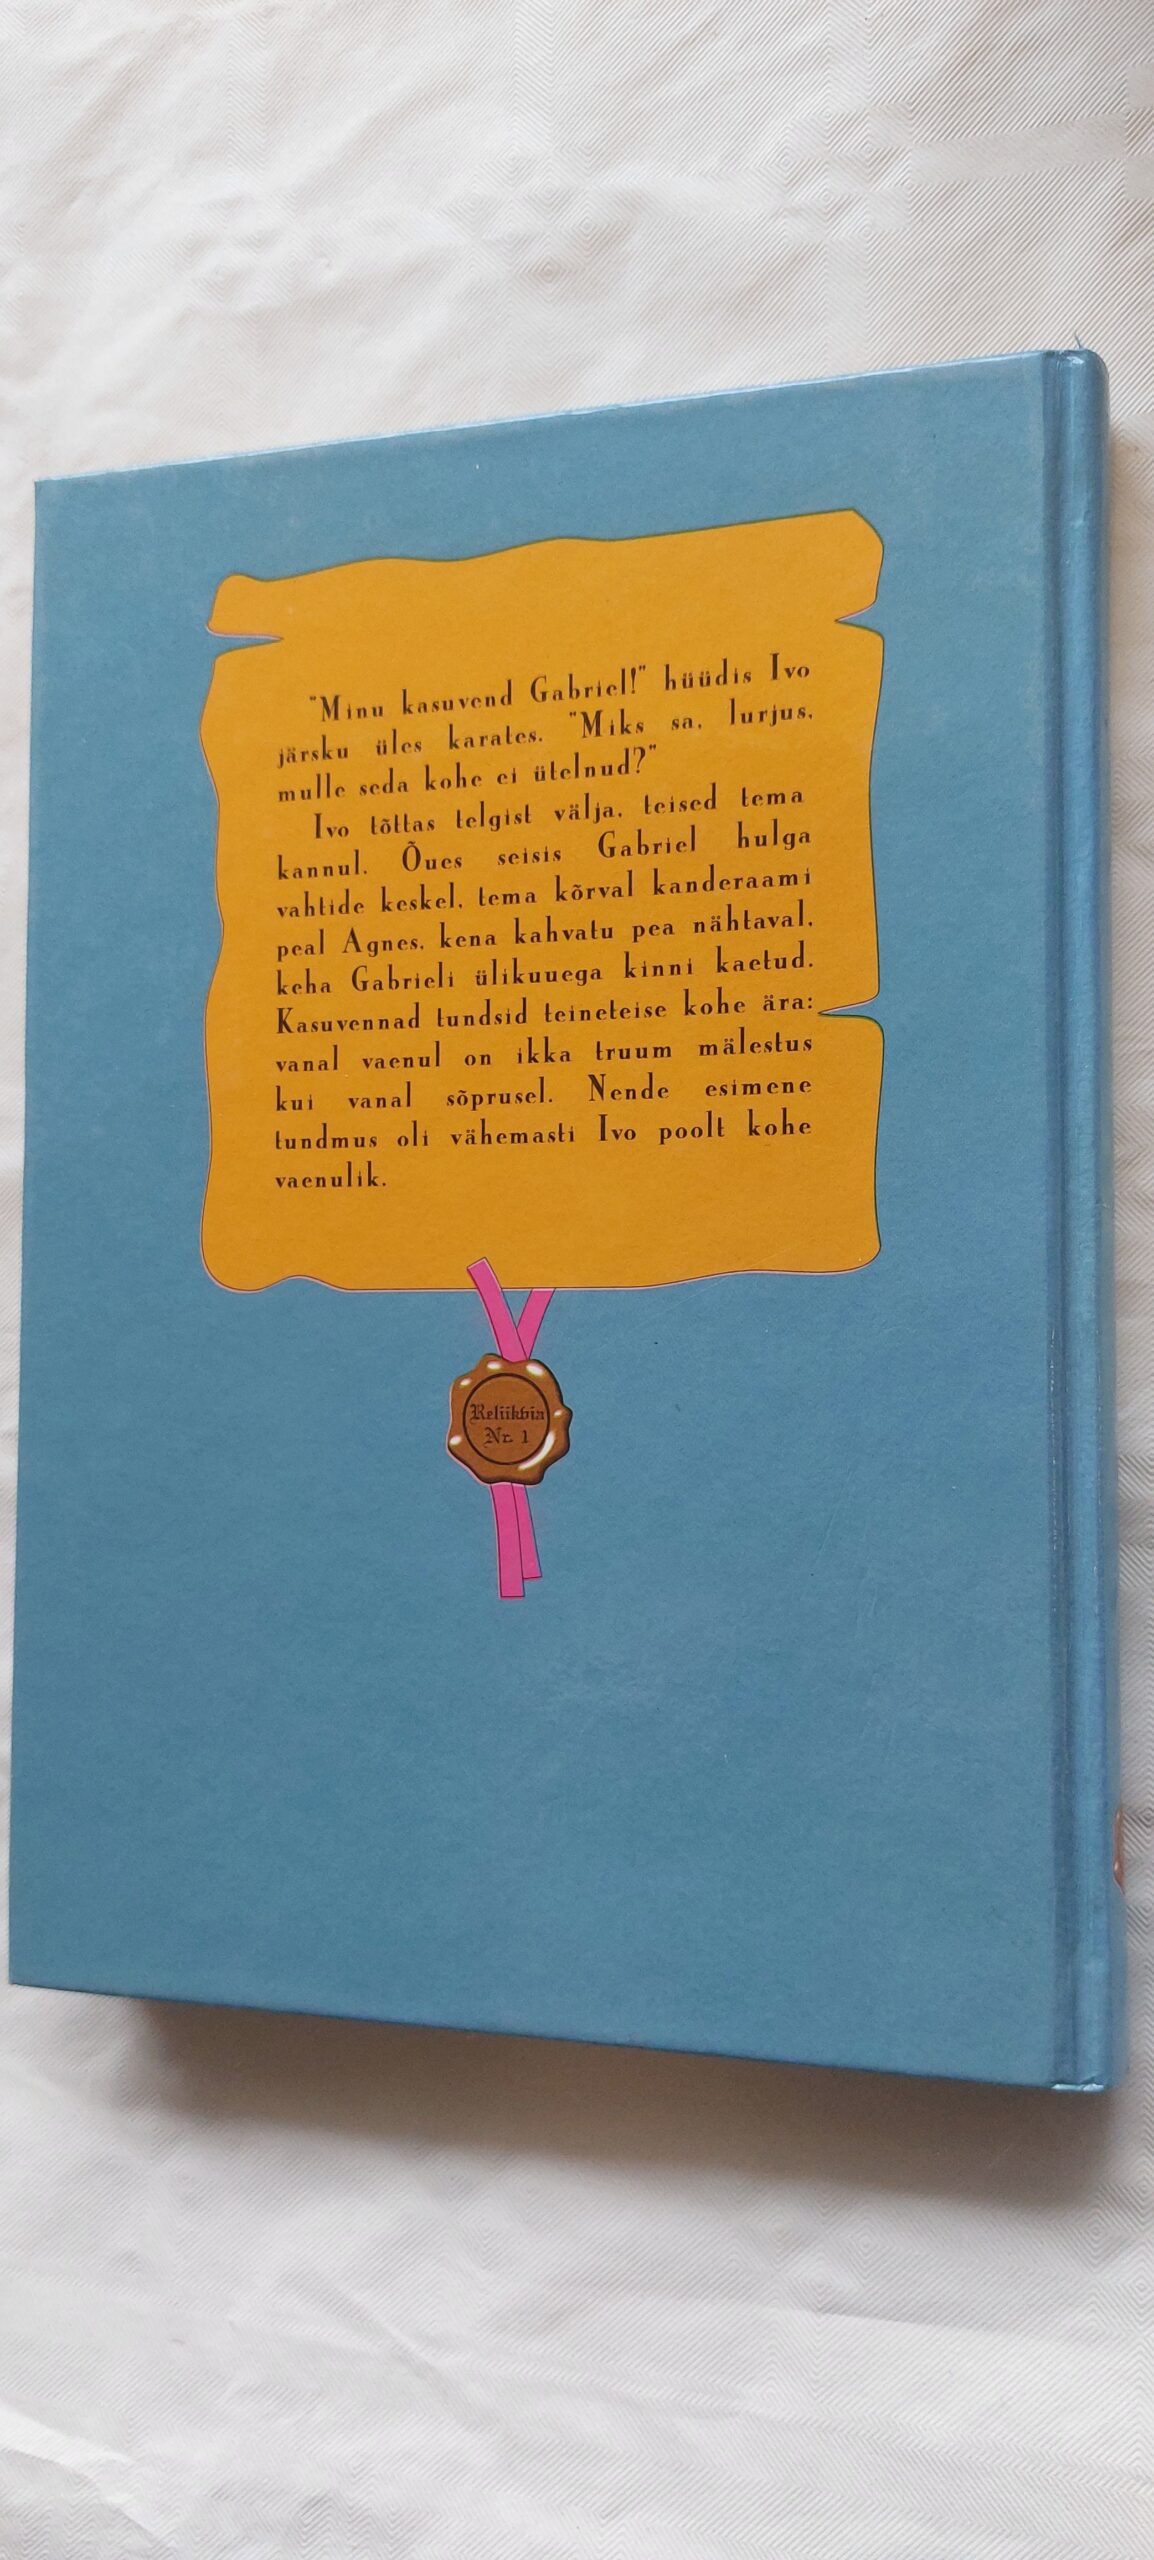 "Minu kasuvend Gabriel!" hüüdis Ivo
järsku üles karates. "Miks sa, lurjus,
mulle seda kohe ei ütelnud?"
Ivo tõttas telgist välja, teised tema
kannul. Õues seisis Gabriel hulga
vahtide keskel, tema kõrval kanderaami
peal Agnes, kena kahvatu pea nähtaval,
keha Gabrieli ülikuuega kinni kaetud.
Kasuvennad tundsid teineteise kohe ära:
vanal vaenul on ikka truum mälestus
kui vanal sõprusel. Nende esimene
tundmus oli vähemasti Ivo poolt kohe
vaenulik.
Reliikvia
Nr. 1